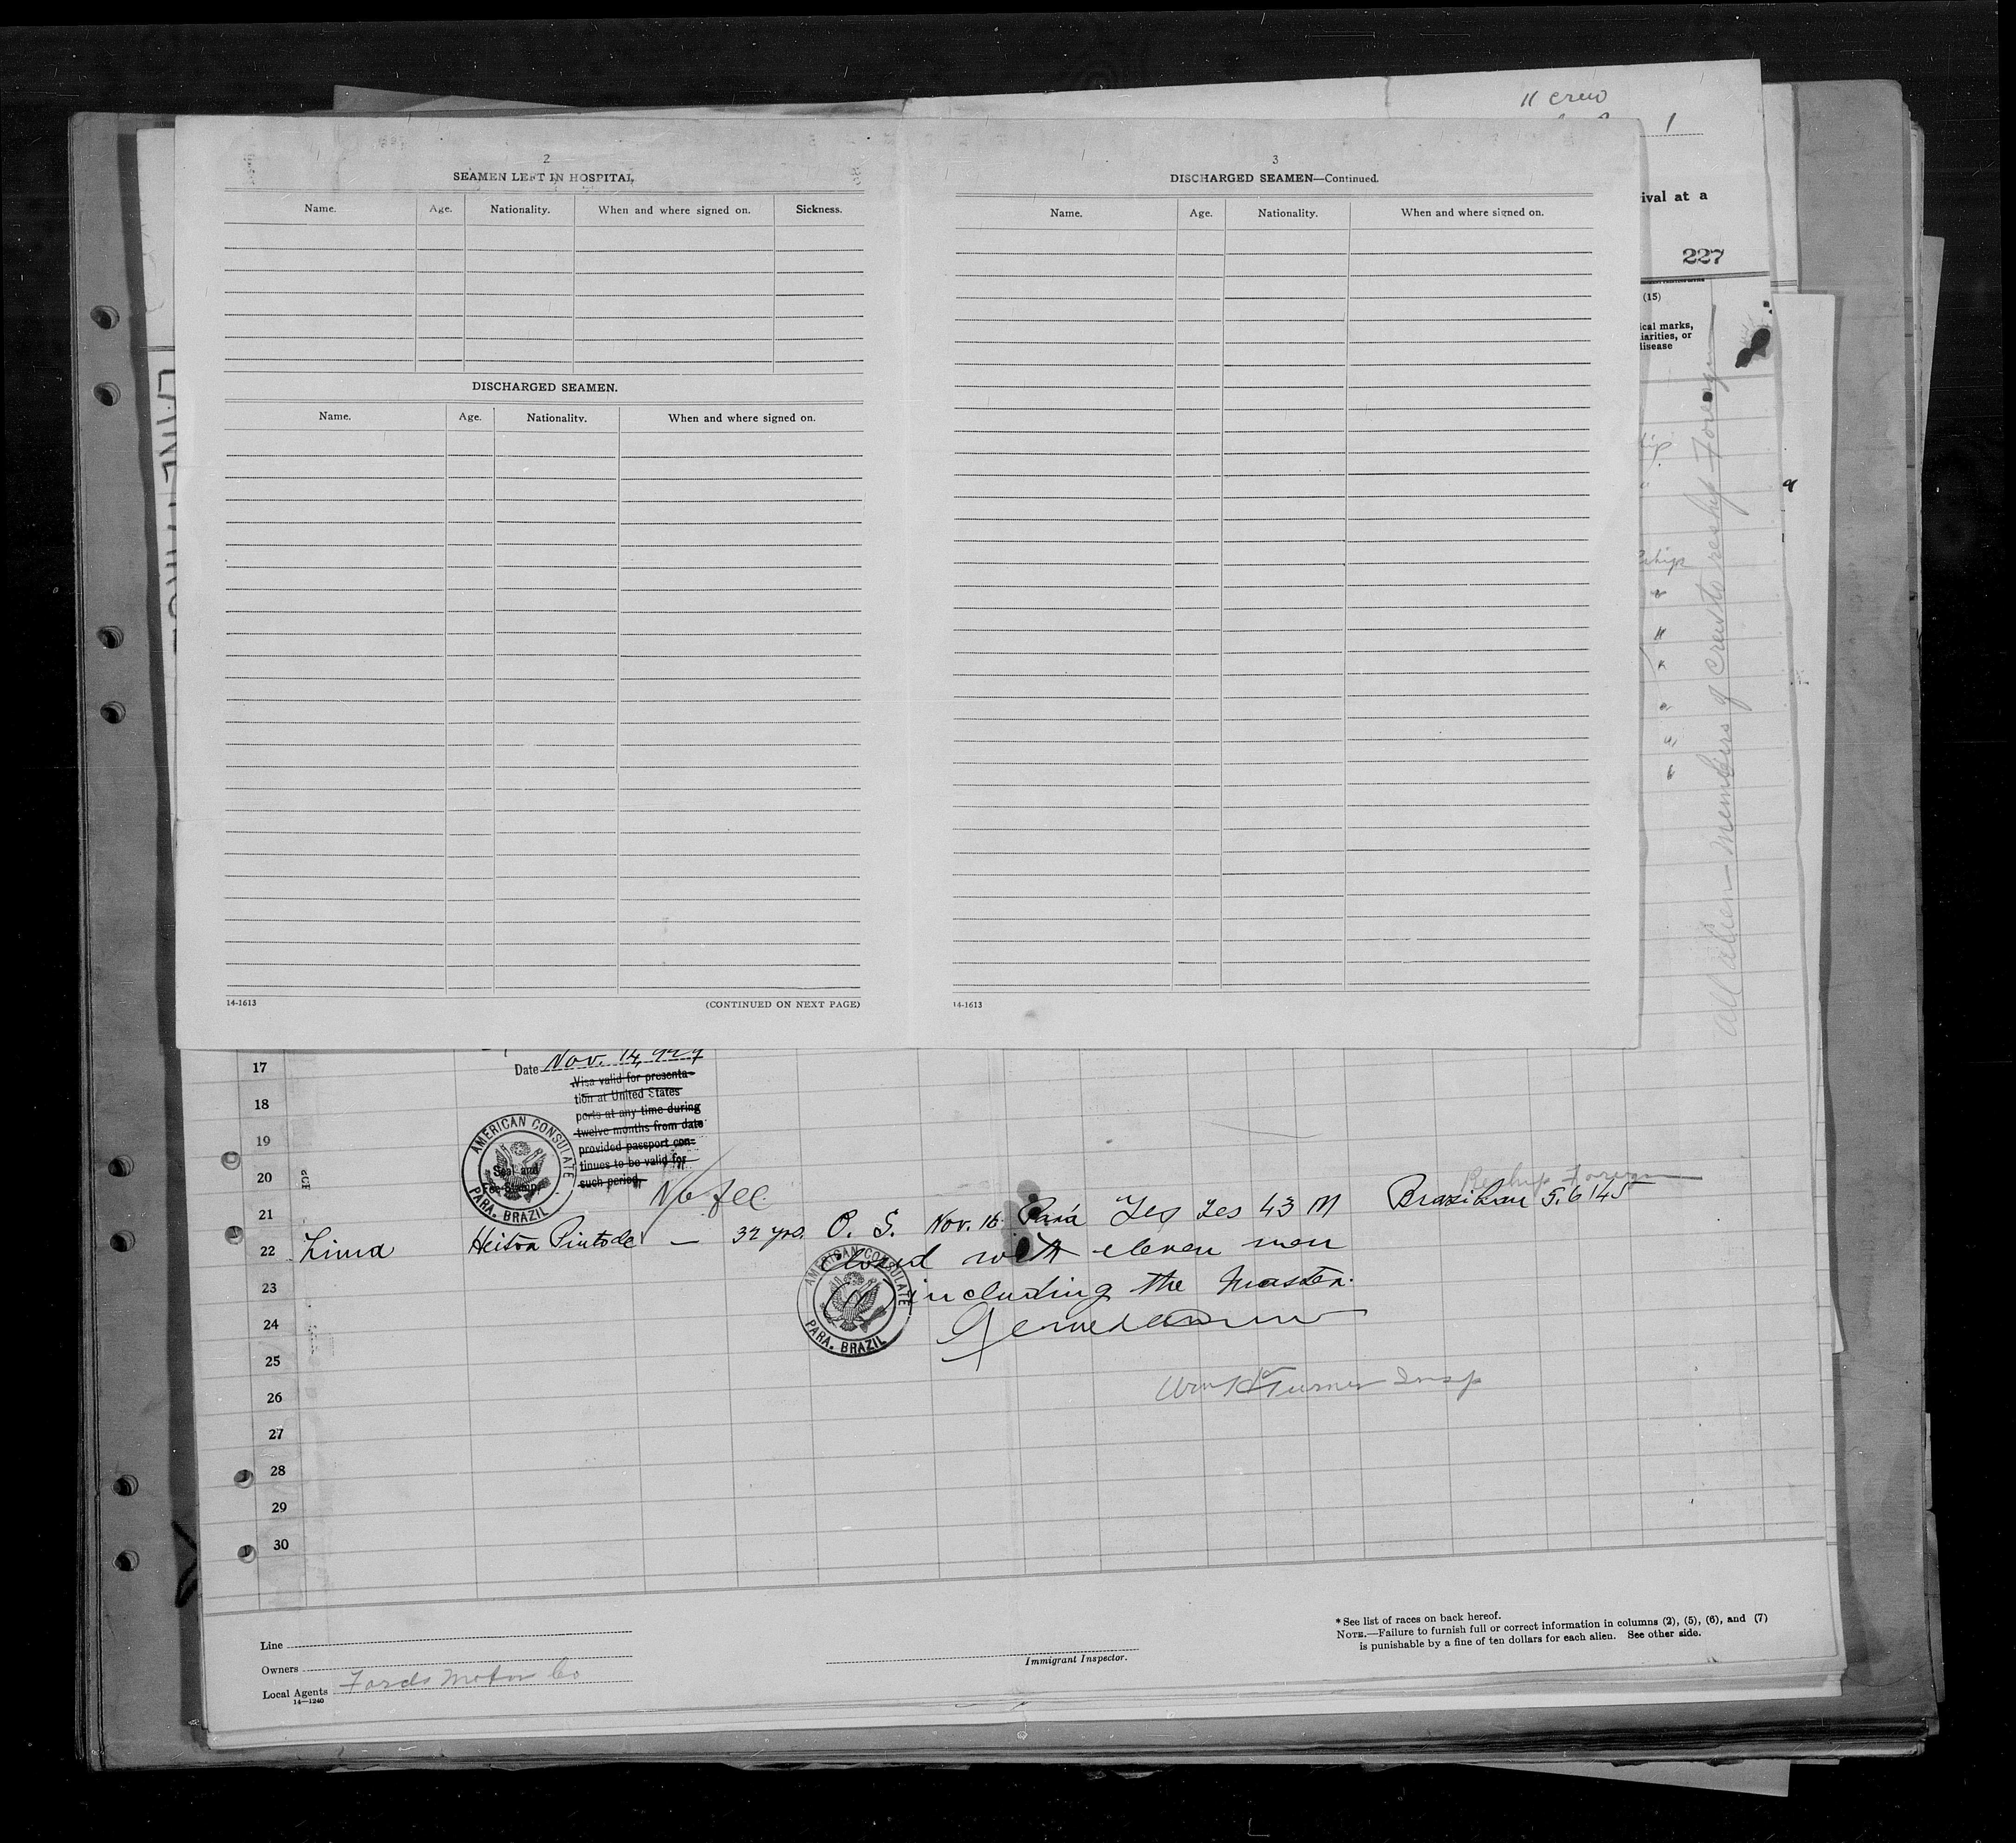 11 crew
1
ival at a
227
(15)
ical marks,
iarities, or
disease
2
SEAMEN LEFT IN HOSPITAL.
Name. Age. Nationality. When and where signed on. Sickness.
DISCHARGED SEAMEN.
Name. Age. Nationality. When and where signed on.
14-1613 (CONTINUED ON NEXT PAGE)
3
DISCHARGED SEAMEN—Continued.
Name. Age. Nationality. When and where signed on.
14-1613
All alien members of crew to reship Foreign
17
Date Nov. 14, 1929
Visa valid for presenta-
tion at United States
ports at any time during
twelve months from date
provided passport con-
tinues to be valid for
such period.
AMERICAN CONSULATE
Seal and
Fee Stamp
PARA. BRAZIL
No fee
18
19
20
Reship Foreign
21
22 Lima Heitor Pinto de — 32 yrs. O. S. Nov. 16 Pará Yes Yes 43 M Brazilian 5.6 145
Closed with eleven men
23
including the Master.
AMERICAN CONSULATE
PARA. BRAZIL
24
25
26
Insp
27
28
29
30
Line
Owners
Local Agents Fords Motor Co
14—1240
Immigrant Inspector.
* See list of races on back hereof.
NOTE.—Failure to furnish full or correct information in columns (2), (5), (6), and (7)
is punishable by a fine of ten dollars for each alien. See other side.